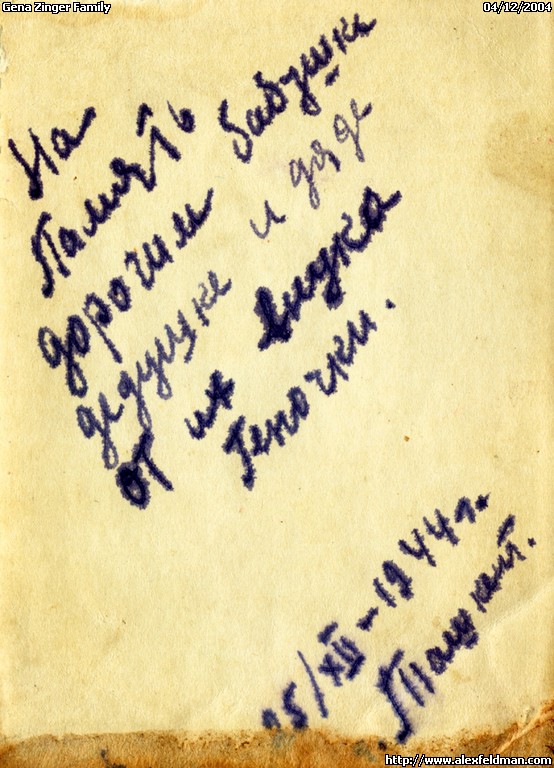 Gena Zinger Family
04/12/2004
На
Память
дорогим бабушке
дедушке и дяде
от их внука
Геночки.
25/XII-1944г.
Ташкент.
http://www.alexfeldman.com